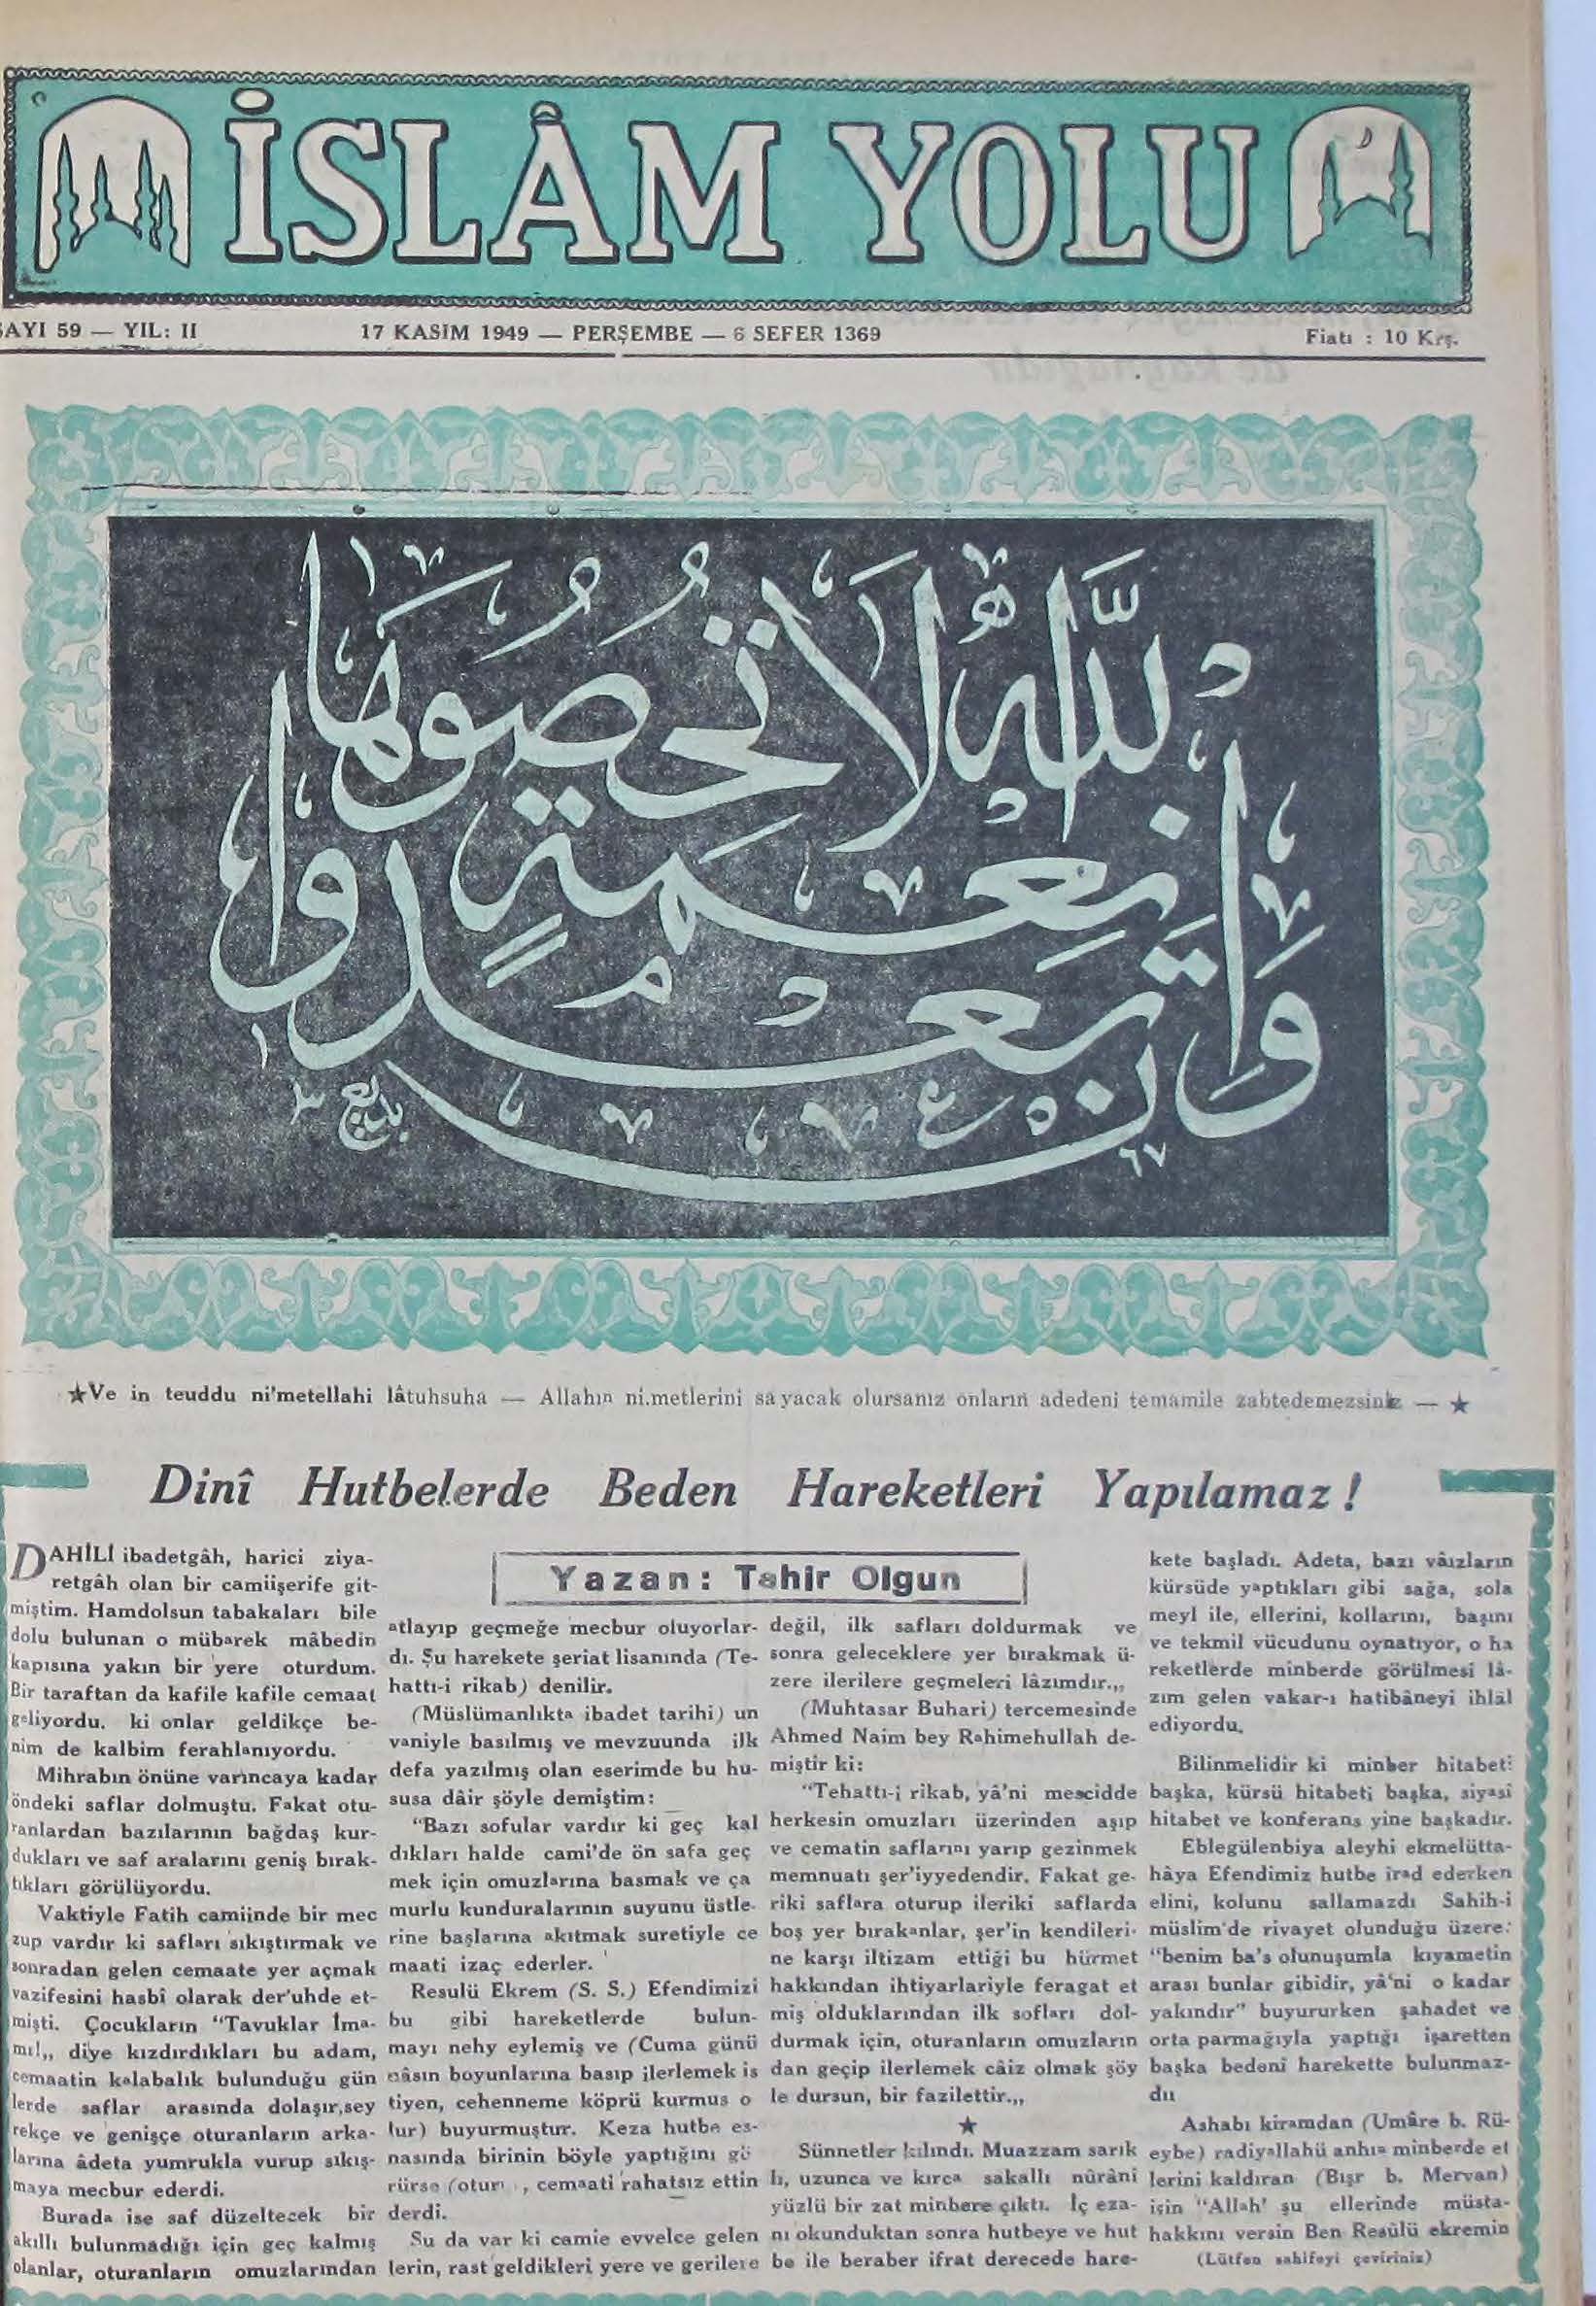 İSLÂM YOLU
SAYI 59 — YIL: II
17 KASIM 1949 — PERŞEMBE — 6 SEFER 1369
Fiatı : 10 Krş.
وَإِن تَعُدُّوا نِعْمَةَ اللَّهِ لَا تُحْصُوهَا
★Ve in teuddu ni'metellahi lâtuhsuha — Allahın ni.metlerini sayacak olursanız onların adedeni temamile zabtedemezsiniz — ★
Dinî Hutbelerde Beden Hareketleri Yapılamaz !
Yazan: Tahir Olgun
DAHİLİ ibadetgâh, harici ziya-
retgâh olan bir camiişerife git-
miştim. Hamdolsun tabakaları bile
dolu bulunan o mübarek mâbedin
kapısına yakın bir yere oturdum.
Bir taraftan da kafile kafile cemaat
geliyordu. ki onlar geldikçe be-
nim de kalbim ferahlanıyordu.
Mihrabın önüne varıncaya kadar
öndeki saflar dolmuştu. Fakat otu-
ranlardan bazılarının bağdaş kur-
dukları ve saf aralarını geniş bırak-
tıkları görülüyordu.
Vaktiyle Fatih camiinde bir mec
zup vardır ki safları sıkıştırmak ve
sonradan gelen cemaate yer açmak
vazifesini hasbî olarak der'uhde et-
mişti. Çocukların "Tavuklar İma-
mı!,, diye kızdırdıkları bu adam,
cemaatin kalabalık bulunduğu gün
lerde saflar arasında dolaşır,sey
rekçe ve genişçe oturanların arka-
larına âdeta yumrukla vurup sıkış-
maya mecbur ederdi.
Burada ise saf düzeltecek bir
akıllı bulunmadığı için geç kalmış
olanlar, oturanların omuzlarından
atlayıp geçmeğe mecbur oluyorlar-
dı. Şu harekete şeriat lisanında (Te-
hattı-i rikab) denilir.
(Müslümanlıkta ibadet tarihi) un
vaniyle basılmış ve mevzuunda ilk
defa yazılmış olan eserimde bu hu-
susa dâir şöyle demiştim:
"Bazı sofular vardır ki geç kal
dıkları halde cami'de ön safa geç
mek için omuzlarına basmak ve ça
murlu kunduralarının suyunu üstle-
rine başlarına akıtmak suretiyle ce
maati izaç ederler.
Resulü Ekrem (S. S.) Efendimizi
bu gibi hareketlerde bulun-
mayı nehy eylemiş ve (Cuma günü
nâsın boyunlarına basıp ilerlemek is
tiyen, cehenneme köprü kurmus o
lur) buyurmuştur. Keza hutbe es-
nasında birinin böyle yaptığını gö
rürse (otur , cemaati rahatsız ettin
derdi.
Su da var ki camie evvelce gelen
lerin, rast geldikleri yere ve gerilere
değil, ilk safları doldurmak ve
sonra geleceklere yer bırakmak ü-
zere ilerilere geçmeleri lâzımdır.,,
(Muhtasar Buhari) tercemesinde
Ahmed Naim bey Rahimehullah de-
miştir ki:
"Tehattı-i rikab, yâ'ni mescidde
herkesin omuzları üzerinden aşıp
ve cematin saflarını yarıp gezinmek
memnuatı şer'iyyedendir. Fakat ge-
riki saflara oturup ileriki saflarda
boş yer bırakanlar, şer'in kendileri-
ne karşı iltizam ettiği bu hürmet
hakkından ihtiyarlariyle feragat et
miş olduklarından ilk safları dol-
durmak için, oturanların omuzların
dan geçip ilerlemek câiz olmak şöy
le dursun, bir fazilettir.,,
★
Sünnetler kılındı. Muazzam sarık
lı, uzunca ve kırca sakallı nûrâni
yüzlü bir zat minbere çıktı. İç eza-
nı okunduktan sonra hutbeye ve hut
be ile beraber ifrat derecede hare-
kete başladı. Adeta, bazı vâizların
kürsüde yaptıkları gibi sağa, sola
meyl ile, ellerini, kollarını, başını
ve tekmil vücudunu oynatıyor, o ha
reketlerde minberde görülmesi lâ-
zım gelen vakar-ı hatibâneyi ihlâl
ediyordu.
Bilinmelidir ki minber hitabeti
başka, kürsü hitabeti başka, siyasî
hitabet ve konferans yine başkadır.
Eblegülenbiya aleyhi ekmelütta-
hâya Efendimiz hutbe irad ederken
elini, kolunu sallamazdı Sahih-i
müslim'de rivayet olunduğu üzere:
"benim ba's olunuşumla kıyametin
arası bunlar gibidir, yâ'ni o kadar
yakındır" buyururken şahadet ve
orta parmağıyla yaptığı işaretten
başka bedenî harekette bulunmaz-
dı
Ashabı kiramdan (Umâre b. Rü-
eybe) radiyallahü anhın minberde el
lerini kaldıran (Bişr b. Mervan)
için "Allah' şu ellerinde müsta-
hakkını versin Ben Resûlü ekremin
(Lütfen sahifeyi çeviriniz)